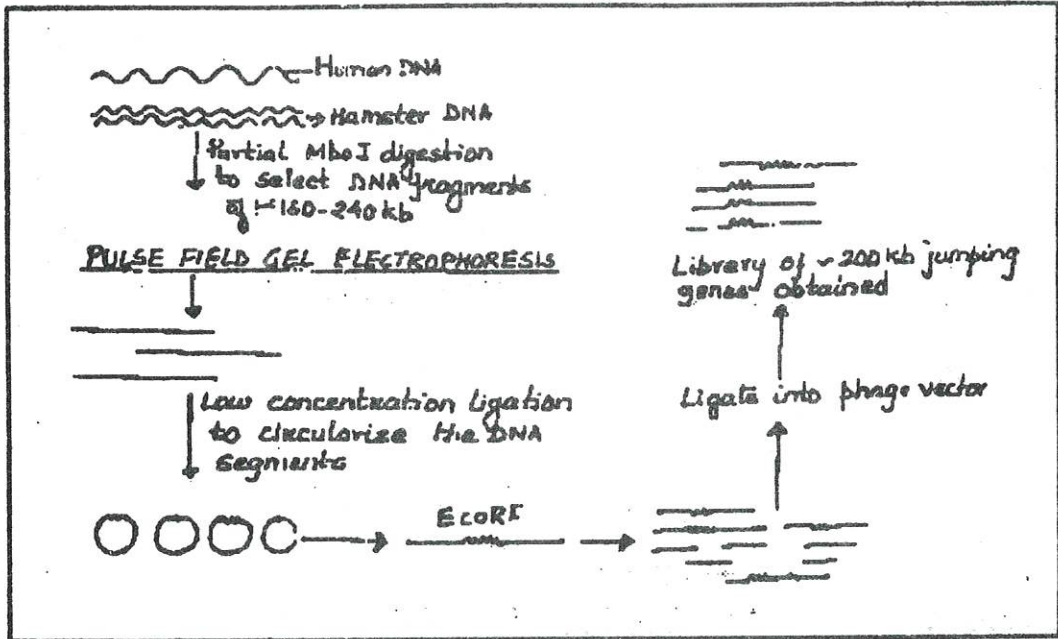 Human DNA
Hamster DNA
Partial MboI digestion
to select DNA fragments
of 160-240kb
PULSE FIELD GEL ELECTROPHORESIS
Low concentration ligation
to circularize the DNA
segments
EcoRI
Ligate into phage vector
Library of ~200kb jumping
genes obtained